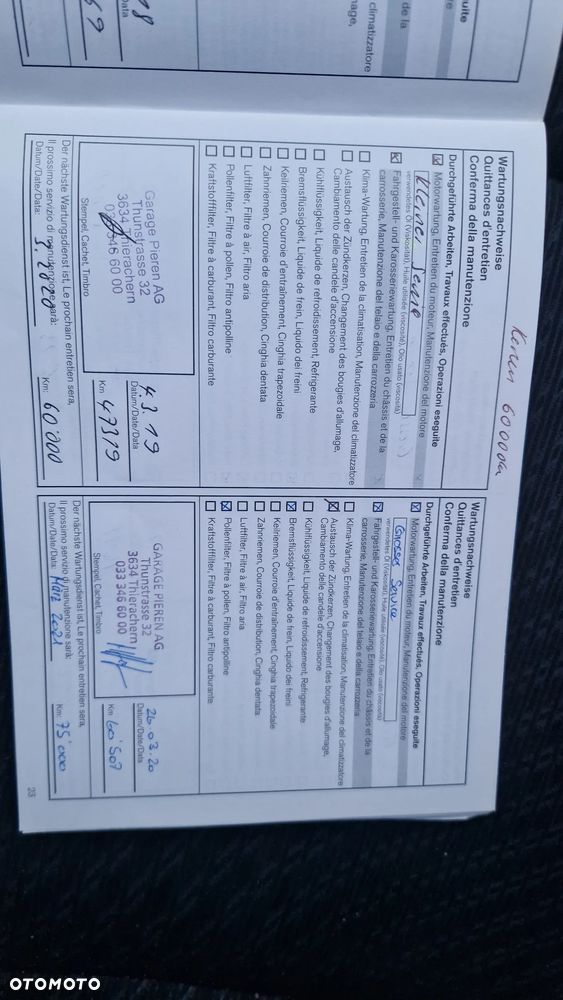 Kerzen 60000km
Wartungsnachweise
Quittances d'entretien
Conferma della manutenzione
Durchgeführte Arbeiten, Travaux effectués, Operazioni eseguite
Motorwartung, Entretien du moteur, Manutenzione del motore
kleiner Service
verwendetes Öl (Viskosität), Huile utilisée (viscosité), Olio usato (viscosità)
Fahrgestell- und Karosseriewartung, Entretien du châssis et de la
carrosserie, Manutenzione del telaio e della carrozzeria
Klima-Wartung, Entretien de la climatisation, Manutenzione del climatizzatore
Austausch der Zündkerzen, Changement des bougies d'allumage,
Cambiamento delle candele d'accensione
Kühlflüssigkeit, Liquide de refroidissement, Refrigerante
Bremsflüssigkeit, Liquide de frein, Liquido dei freini
Keilriemen, Courroie d'entraînement, Cinghia trapezoidale
Zahnriemen, Courroie de distribution, Cinghia dentata
Luftfilter, Filtre à air, Filtro aria
Pollenfilter, Filtre à pollen, Filtro antipolline
Kraftstofffilter, Filtre à carburant, Filtro carburante
Garage Pieren AG
Thunstrasse 32
3634 Thierachern
033 346 60 00
Stempel, Cachet, Timbro
4.3.19
Datum/Date/Data
47319
Km
Der nächste Wartungsdienst ist, Le prochain entretien sera,
Il prossimo servizio di manutenzione sarà:
Datum/Date/Data:
Km: 60'000
Wartungsnachweise
Quittances d'entretien
Conferma della manutenzione
Durchgeführte Arbeiten, Travaux effectués, Operazioni eseguite
Motorwartung, Entretien du moteur, Manutenzione del motore
Grosser Service
verwendetes Öl (Viskosität), Huile utilisée (viscosité), Olio usato (viscosità)
Fahrgestell- und Karosseriewartung, Entretien du châssis et de la
carrosserie, Manutenzione del telaio e della carrozzeria
Klima-Wartung, Entretien de la climatisation, Manutenzione del climatizzatore
Austausch der Zündkerzen, Changement des bougies d'allumage,
Cambiamento delle candele d'accensione
Kühlflüssigkeit, Liquide de refroidissement, Refrigerante
Bremsflüssigkeit, Liquide de frein, Liquido dei freini
Keilriemen, Courroie d'entraînement, Cinghia trapezoidale
Zahnriemen, Courroie de distribution, Cinghia dentata
Luftfilter, Filtre à air, Filtro aria
Pollenfilter, Filtre à pollen, Filtro antipolline
Kraftstofffilter, Filtre à carburant, Filtro carburante
GARAGE PIEREN AG
Thunstrasse 32
3634 Thierachern
033 346 60 00
Stempel, Cachet, Timbro
26.03.20
Datum/Date/Data
60'507
Km
Der nächste Wartungsdienst ist, Le prochain entretien sera,
Il prossimo servizio di manutenzione sarà:
Datum/Date/Data: März 2021
Km: 75'000
23
OTOMOTO